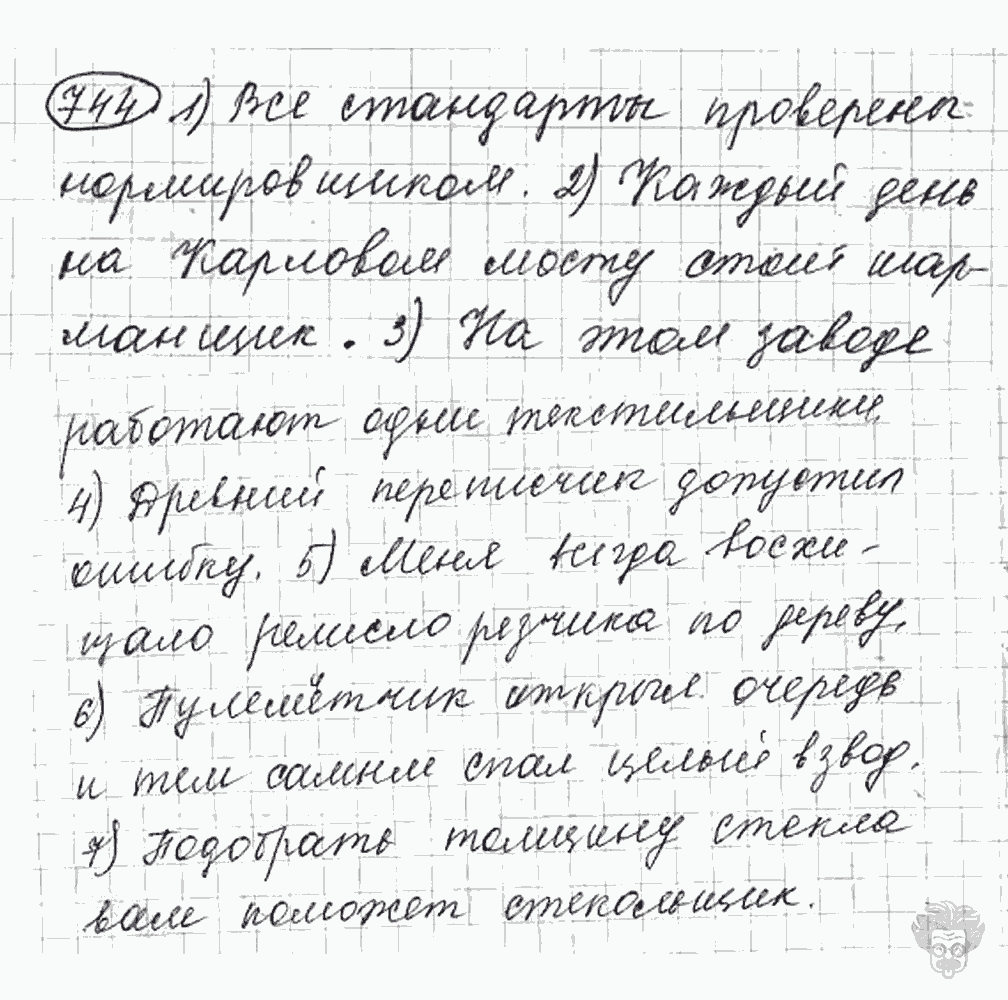 744. 1) Все стандарты проверены
нормировщиком. 2) Каждый день
на Карловом мосту стоит шар-
манщик. 3) На этом заводе
работают одни текстильщики.
4) Древний переписчик допустил
ошибку. 5) Меня всегда восхи-
щало ремесло резчика по дереву.
6) Пулемётчик открыл очередь
и тем самым спас целый взвод.
7) Подобрать толщину стекла
вам поможет стекольщик.